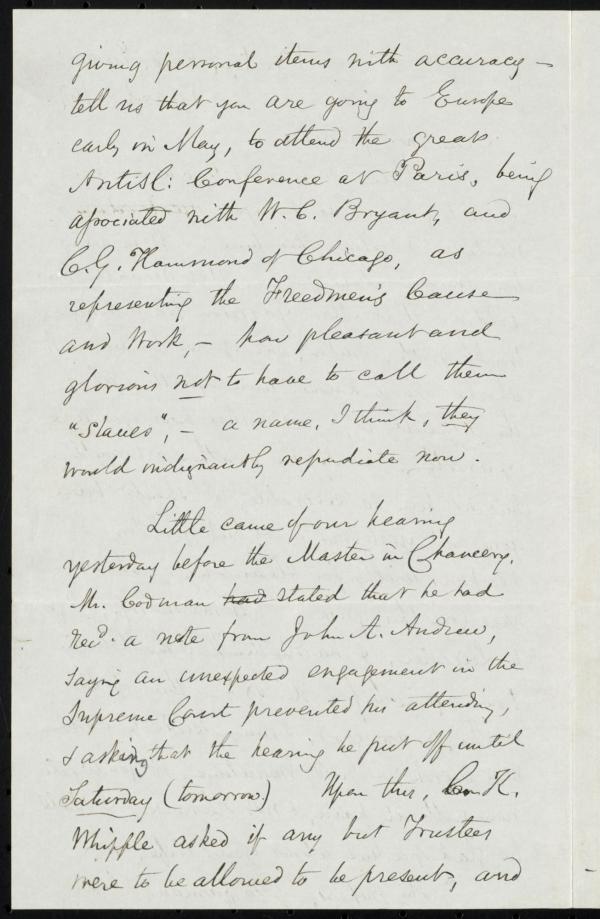 giving personal items with accuracy —
tell us that you are going to Europe
early in May, to attend the great
Antisl: Conference at Paris, being
associated with W. C. Bryant, and
C. G. Hammond of Chicago, as
representing the Freedmen's Cause
and Work, — how pleasant and
glorious not to have to call them
"slaves", — a name, I think, they
would indignantly repudiate now.
Little came of our hearing
yesterday before the Master in Chancery.
Mr. Codman had stated that he had
recd. a note from John A. Andrew,
saying an unexpected engagement in the
Supreme Court prevented his attending,
& asking that the hearing be put off until
Saturday (tomorrow.) Upon this, K.
Whipple asked if any but Trustees
were to be allowed to be present, and